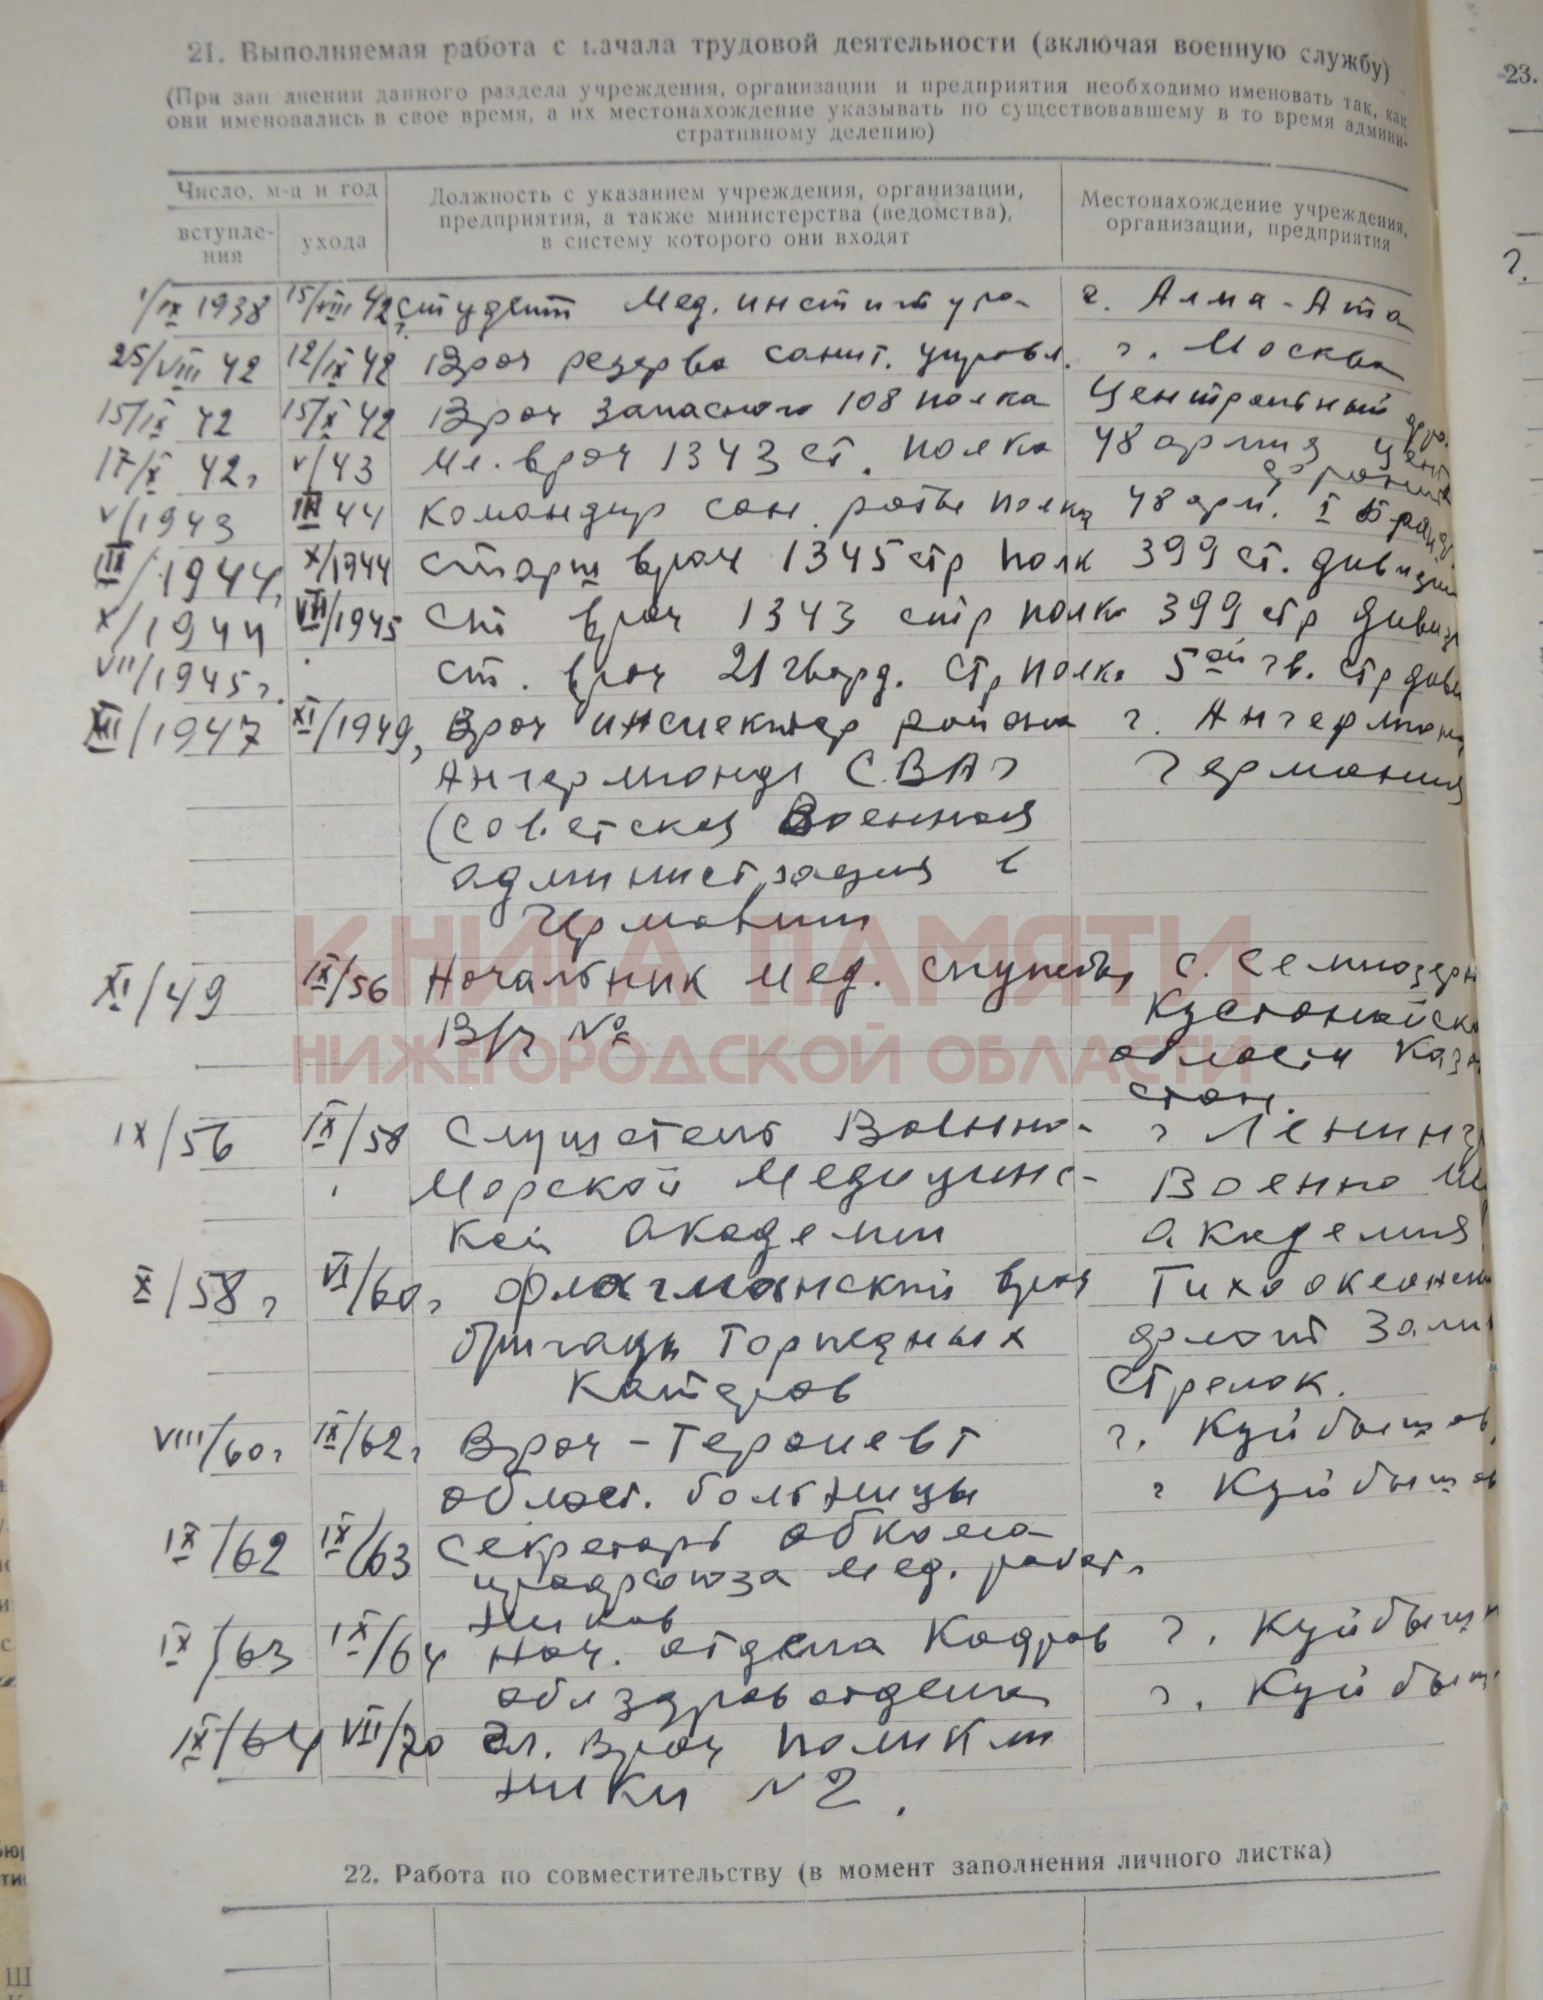 21. Выполняемая работа с начала трудовой деятельности (включая военную службу)
(При зап лнении данного раздела учреждения, организации и предприятия необходимо именовать так, как
они именовались в свое время, а их местонахождение указывать по существовавшему в то время админи-
стративному делению)
Число, м-ц и год
вступле-
ния
ухода
Должность с указанием учреждения, организации,
предприятия, а также министерства (ведомства),
в систему которого они входят
Местонахождение учреждения,
организации, предприятия
1/IX 1938 15/VIII 42 студент Мед. института г. Алма-Ата
25/VIII 42 12/IX 42 Врач резерва санит. управл. г. Москва
15/IX 42 15/X 42 Врач запасного 108 полка Центральный фро.
17/X 42г V/43 Мл. врач 1343 ст. полка 48 армия Цент
фронта
V/1943 III 44 Командир сан. роты полка 48 арм. I
III/1944, X/1944 Старш врач 1345 стр полк 399 ст. дивизии
X/1944 VII/1945 Ст врач 1343 стр полка 399 стр дивиз
VII/1945г. Ст. врач 21 гвард. стр полка 5ой гв. стр диви
XII/1947 XI/1949, Врач инспектор района г. Ангермюнд
Ангермюнде СВАГ Германия
(Советская Военная
администрация в
Германии
XI/49 IX/56 Начальник мед. службы с. Семиозерн
В/ч № Кустанайск
области Каза
стан.
IX/56 IX/58 Слушатель Военно- г Ленингр
Морской Медицинс- Военно М
кой академии академия
X/58г VI/60г Флагманский врач Тихоокеанск
бригады торпедных флот Зали
катеров Стрелок.
VIII/60г IX/62г Врач-терапевт г. Куйбышев
област. больницы г Куйбышев
IX/62 IX/63 Секретарь обкома
профсоюза мед. работ
ников
IX/63 IX/64 Нач. отдела Кадров г. Куйбыш
облздравотдела г. Куйбыш
IX/64 VII/70 Гл. врач поликли
ники №2.
22. Работа по совместительству (в момент заполнения личного листка)
23.
КНИГА ПАМЯТИ
НИЖЕГОРОДСКОЙ ОБЛАСТИ